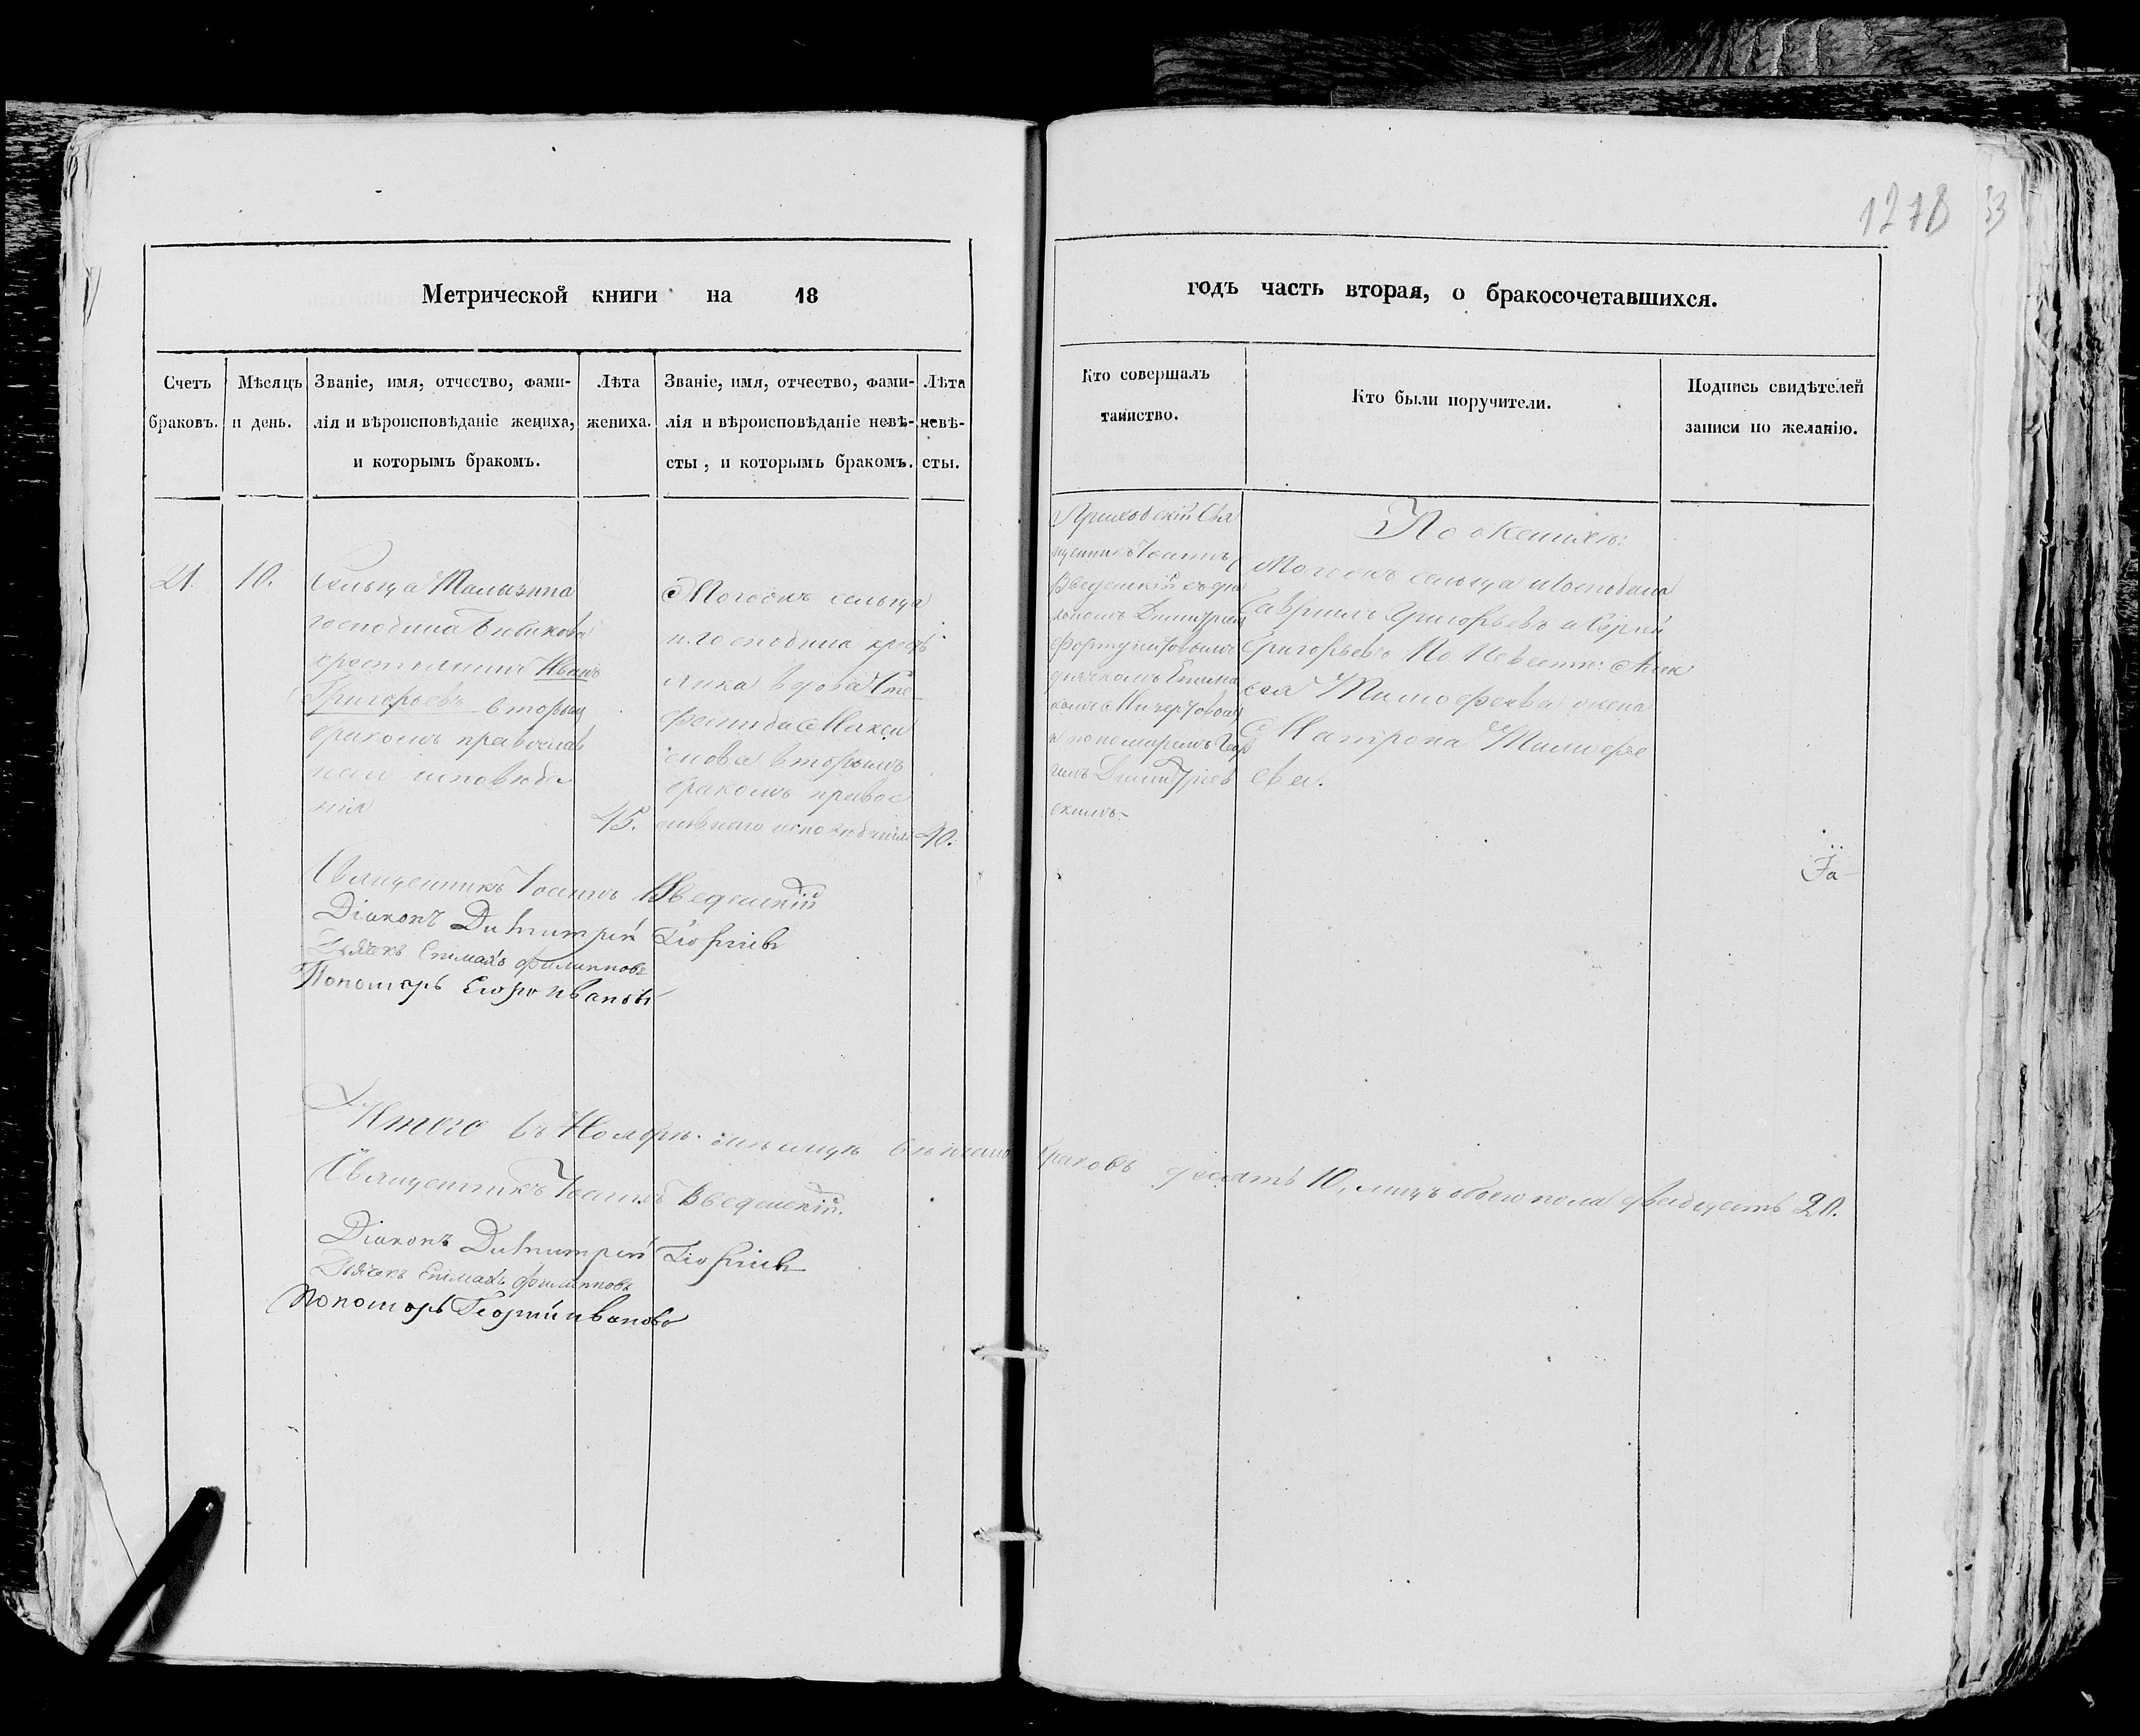 1278 33
Метрической книги на 18
годъ часть вторая, о бракосочетавшихся.
Счетъ
браковъ.
Мѣсяцъ
и день.
Званіе, имя, отчество, фами-
лія и вѣроисповѣданіе жениха,
и которымъ бракомъ.
Лѣта
жениха.
Званіе, имя, отчество, фами-
лія и вѣроисповѣданіе невѣ-
сты, и которымъ бракомъ.
Лѣта
невѣ-
сты.
Кто совершалъ
таинство.
Кто были поручители.
Подпись свидѣтелей
записи по желанію.
21.
10.
Сельца
господина Бибикова
крестьянинъ Иванъ
Григорьевъ вторым
бракомъ православ
наго исповѣда
нія
45.
сельца
и господина крест
янка вдова Сте
Макси
мова вторымъ
бракомъ правос
лавнаго исповѣданія
40.
Приходскій Свя
щенникъ Іоаннъ
Введенскій съ діа
кономъ Димитріем
дьячкомъ
и пономаремъ
скимъ.
По женихѣ:
сельца и господина
Гавріилъ Григорьевъ и Сергѣй
Григорьевъ По невестѣ: Алек
Тимофеева жена
Матрона Тимофе
ева.
Священникъ Іоаннъ Введенскій
Діаконъ Димитрій
Дьячекъ Епимахъ Филипповъ
Пономарь Егоръ Ивановъ
Итого въ Ноябрѣ мѣсяцѣ браковъ десять 10, лицъ обоего пола двадцать 20.
Священникъ Іоаннъ Введенскій.
Діаконъ Димитрій
Дьячекъ Епимахъ Филипповъ
Пономарь Георгій Ивановъ